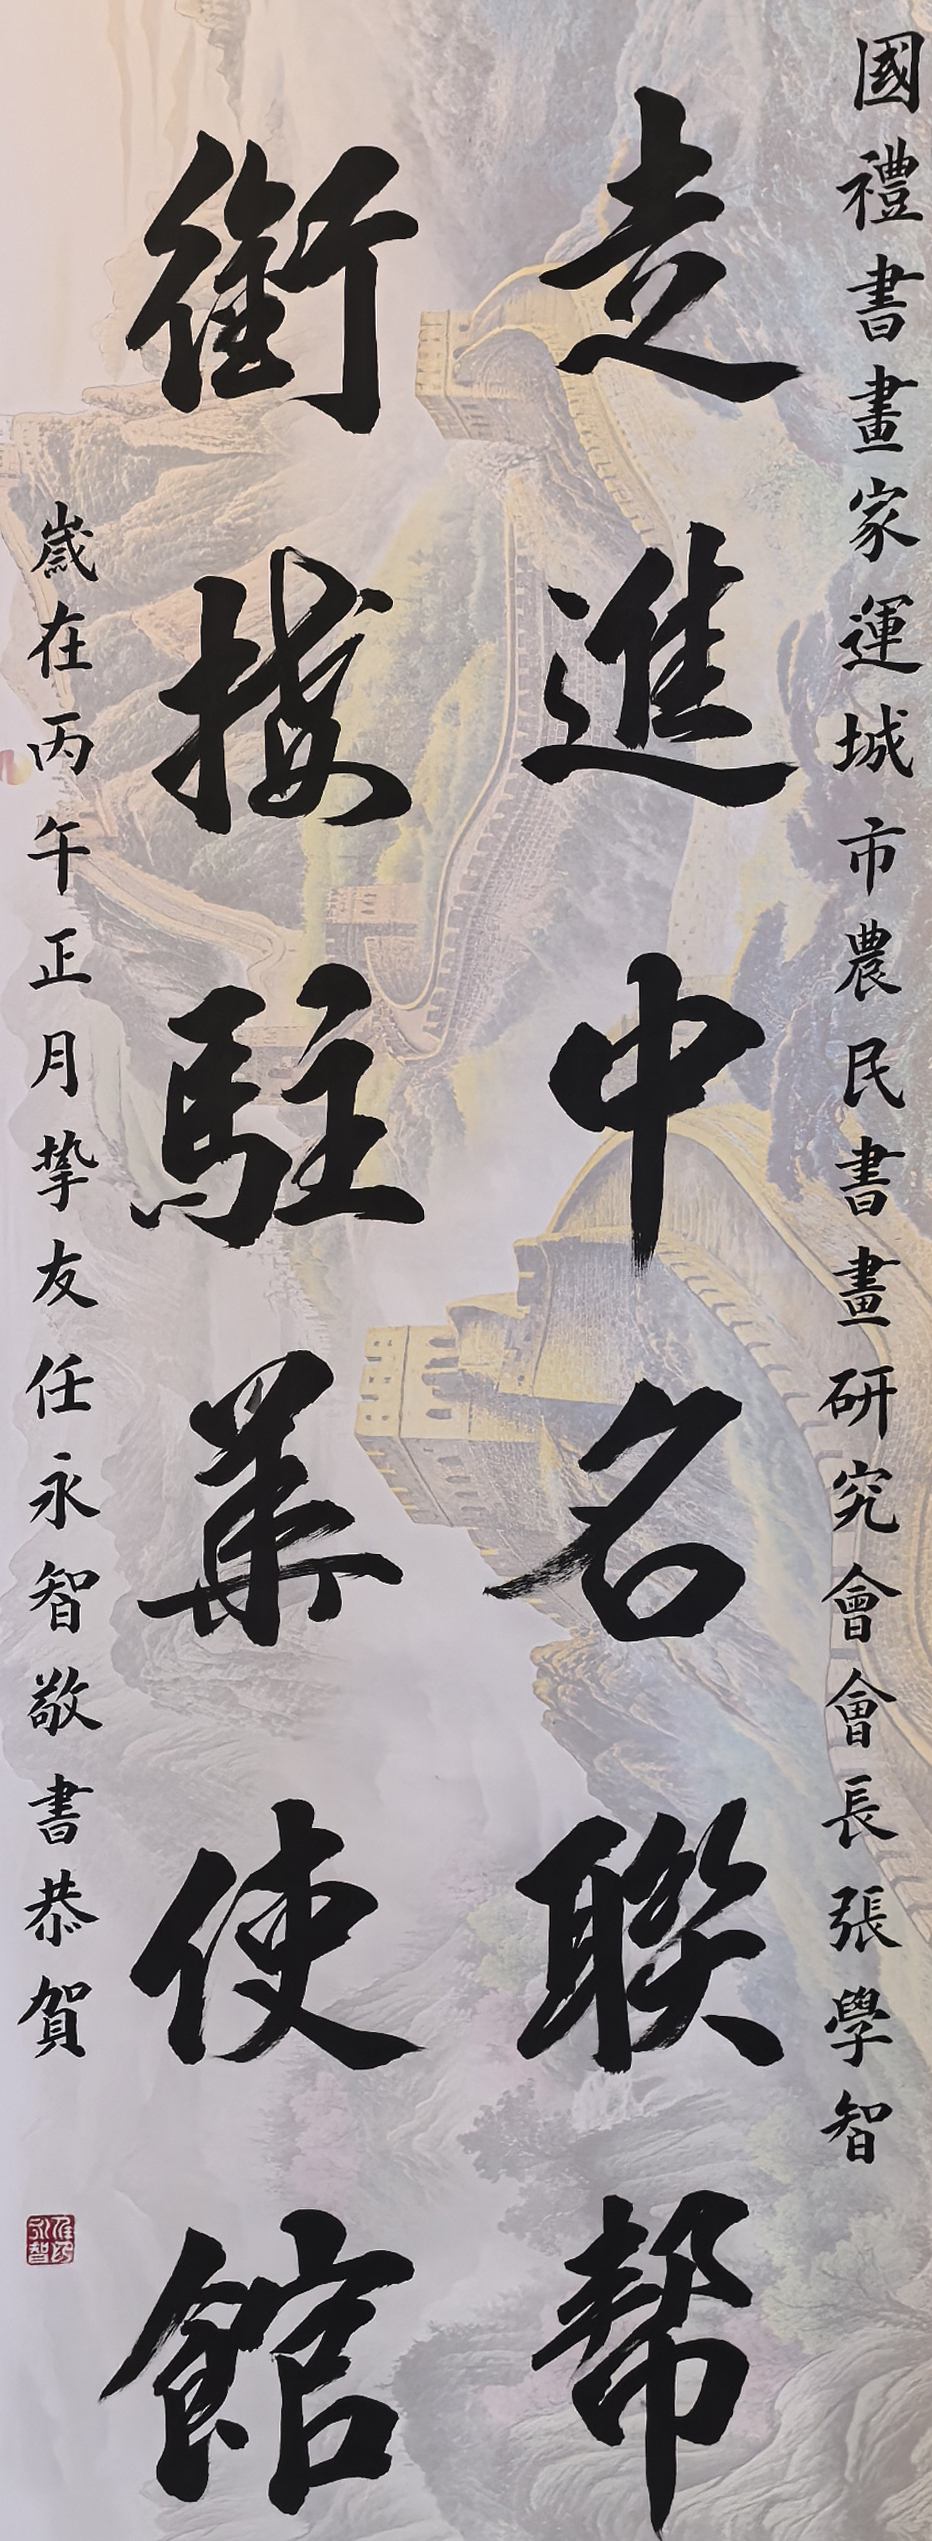 國禮書畫家運城市農民書畫研究會會長張學智
走進中名聯帮
銜接駐華使館
歲在丙午正月摯友任永智敬書恭賀
任印永智